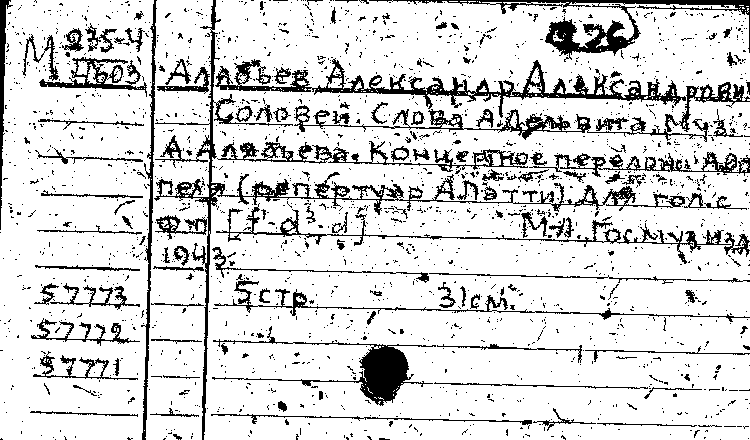 М 235-4
4603
Алябьев Александр Александрови
Соловей. Слова А.Дельвига. Муз.
А. Алябьева. Концертное перелож.
(репертуар А.Патти). Для гол. с
ф-п [f'-d³; d]
М-Л., Гос. муз. изд
1943.
57773 5 стр. 31 см.
57772
57771